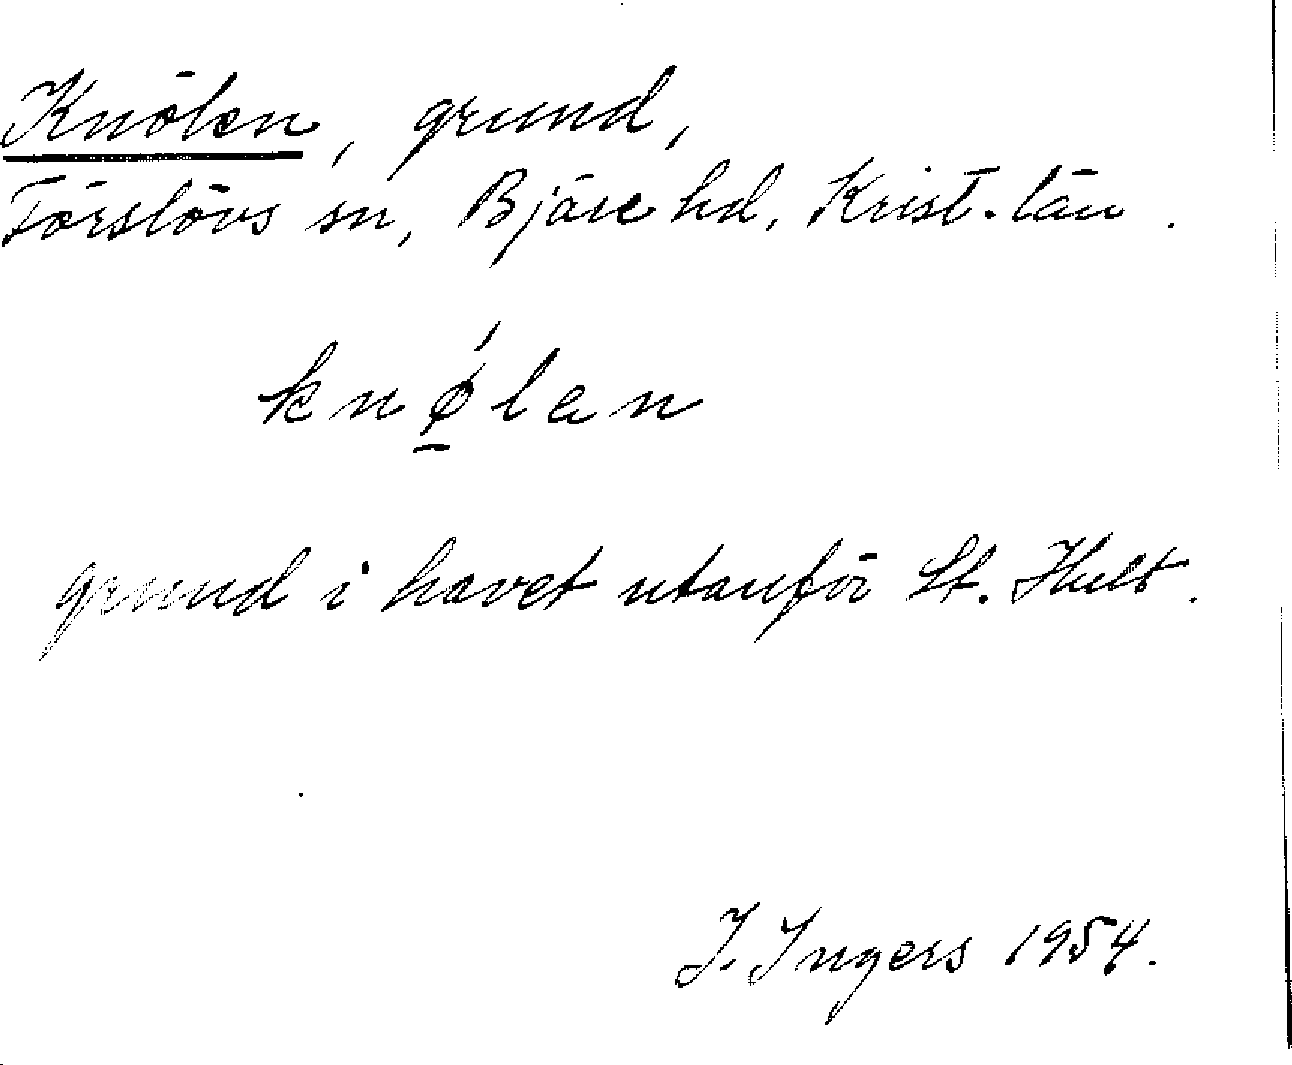 Knölen, grund,
Förslövs sn, Bjäre hd, Krist. län.
knǿ̱lan
grund i havet utanför St. Hult.
I. Ingers 1954.